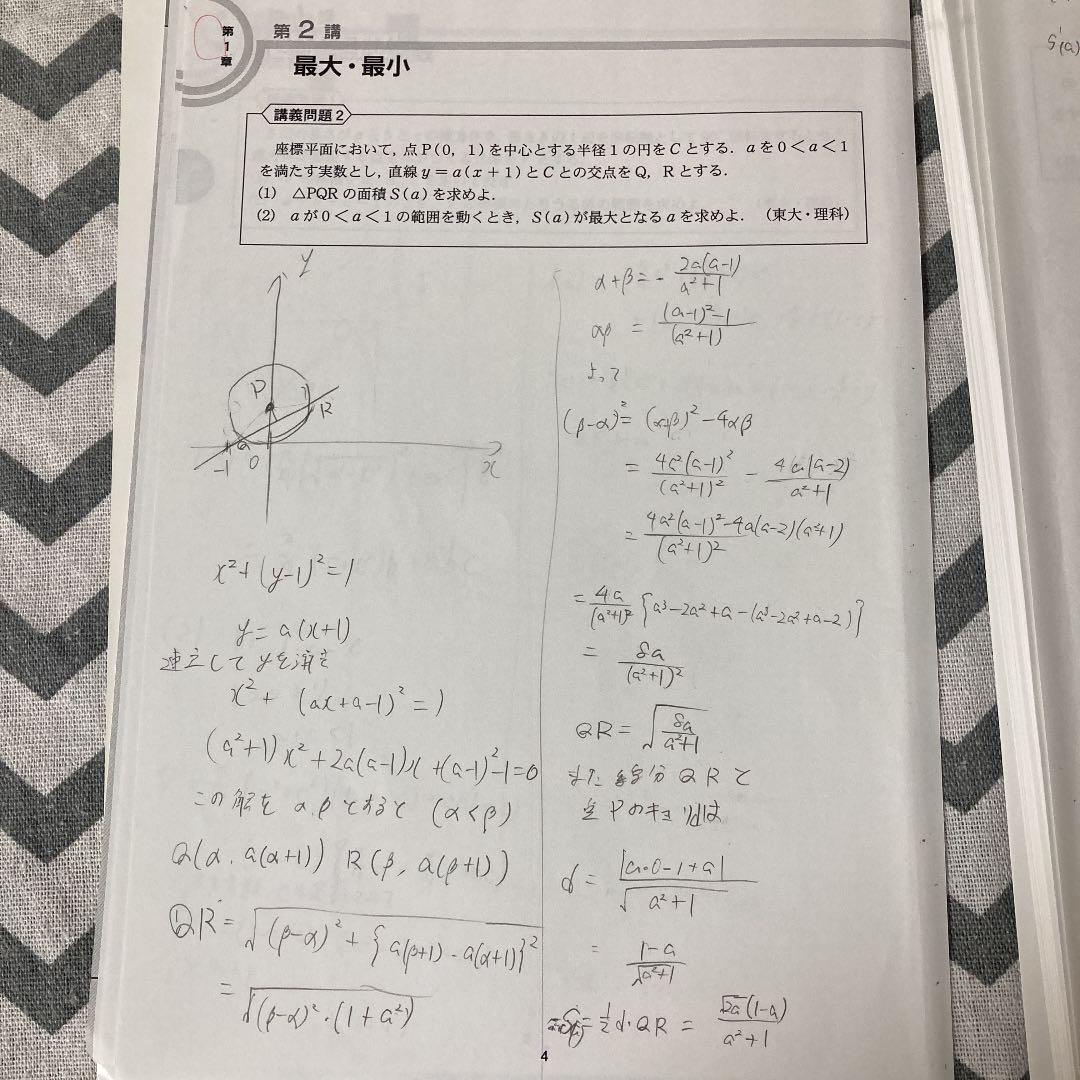 第1章
第2講
最大・最小
講義問題2
座標平面において，点P(0，1)を中心とする半径1の円をCとする．aを0＜a＜1
を満たす実数とし，直線y＝a(x＋1)とCとの交点をQ，Rとする．
(1) △PQRの面積S(a)を求めよ．
(2) aが0＜a＜1の範囲を動くとき，S(a)が最大となるaを求めよ．（東大・理科）
y
P
R
Q
-1
0
x
x²+(y-1)²=1
y=a(x+1)
連立してyを消去
x²+(ax+a-1)²=1
(a²+1)x²+2a(a-1)x+(a-1)²-1=0
この解をα,βとすると(α<β)
Q(α, a(α+1)) R(β, a(β+1))
QR=√((β-α)²+{a(β+1)-a(α+1)}²)
=√((β-α)²・(1+a²))
α+β=-2a(a-1)/(a²+1)
αβ=((a-1)²-1)/(a²+1)
よって
(β-α)²=(α+β)²-4αβ
=4a²(a-1)²/(a²+1)²-4a(a-2)/(a²+1)
=(4a²(a-1)²-4a(a-2)(a²+1))/(a²+1)²
=4a/(a²+1)²{a³-2a²+a-(a³-2a²+a-2)}
=8a/(a²+1)²
QR=√(8a/(a²+1))
また線分QRと
点Pのキョリdは
d=|a・0-1+a|/√(a²+1)
=(1-a)/√(a²+1)
=1/2 d・QR=√2a(1-a)/(a²+1)
4
S'(a)